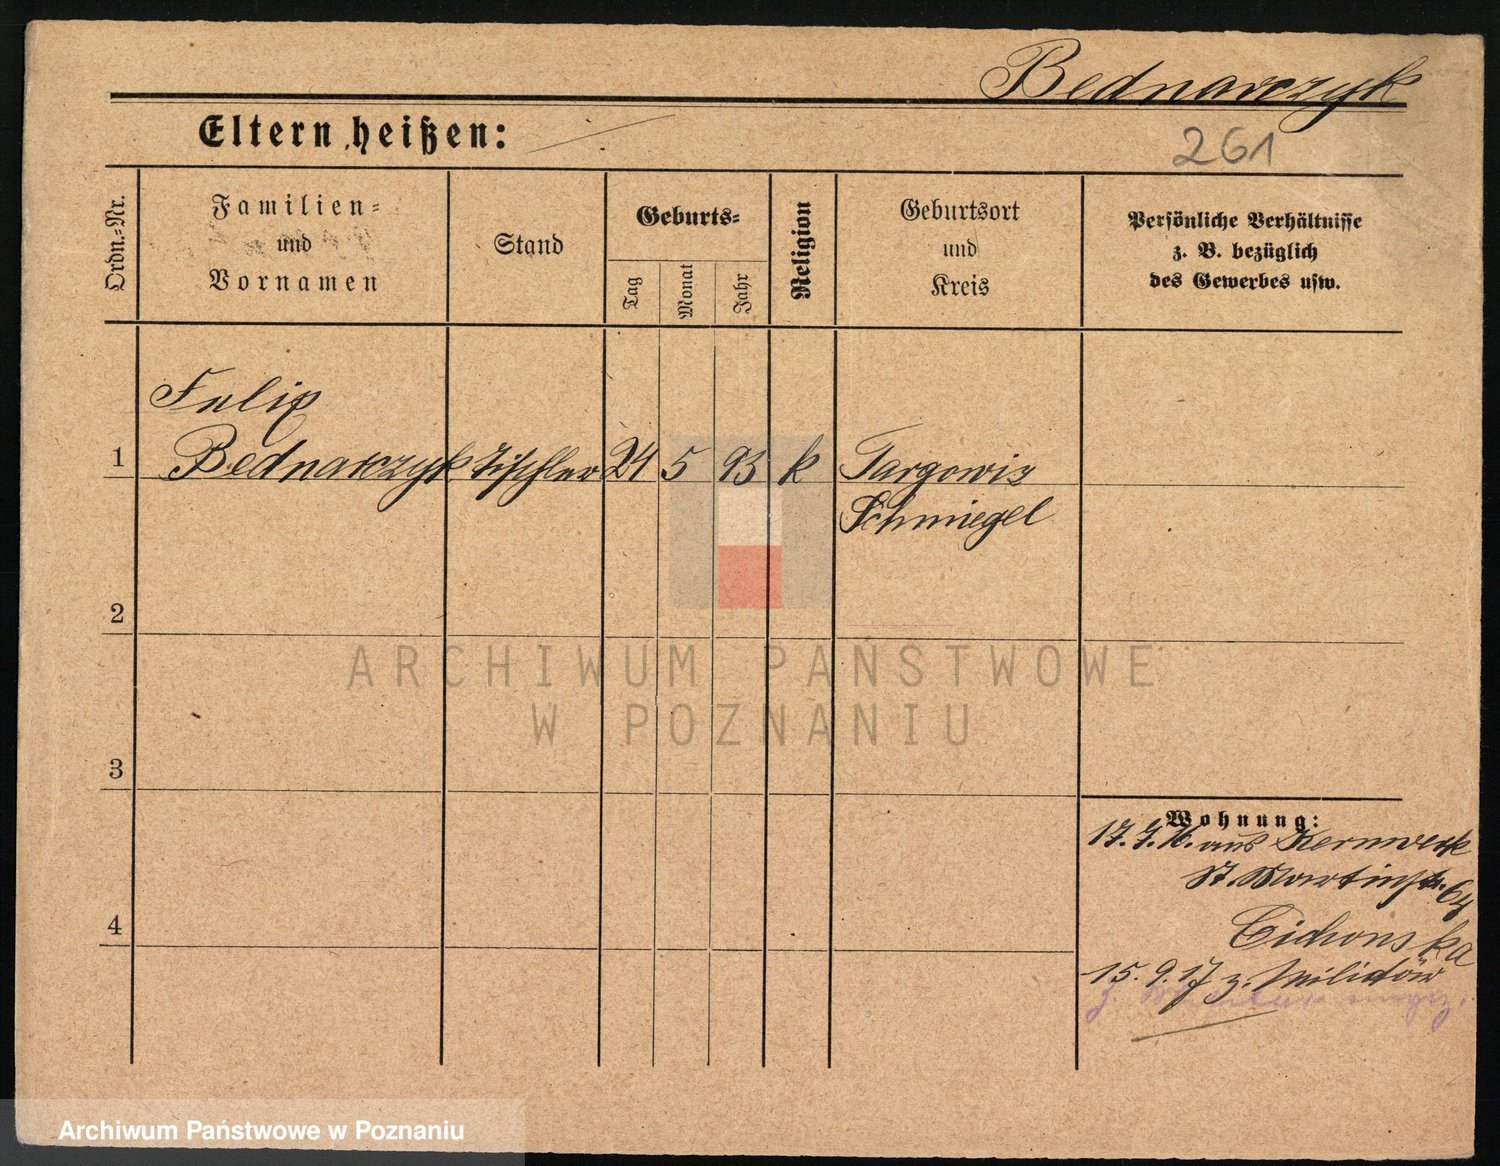 Bednarczyk
Eltern heißen:
261
Ordn.-Nr.
Familien-
und
Vornamen
Stand
Geburts-
Tag
Monat
Jahr
Religion
Geburtsort
und
Kreis
Persönliche Verhältnisse
z. B. bezüglich
des Gewerbes usw.
Felix
1 Bednarczyk Tischler 24 5 93 k Targowiz
Schmiegel
2
ARCHIWUM PAŃSTWOWE
W POZNANIU
3
Wohnung:
17.7.16. aus Kernwerk
St. Martinstr. 64
4
Cichonska
15.9.17 z. Militär
z. Militär eingez.
Archiwum Państwowe w Poznaniu